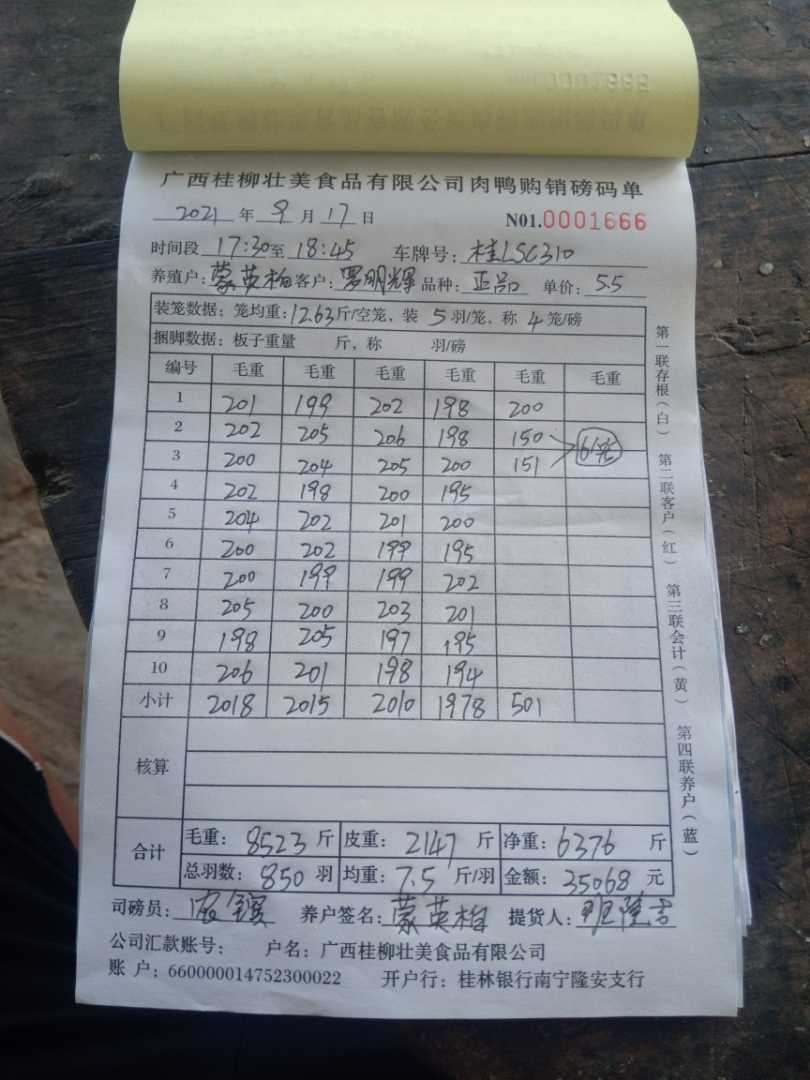 广西桂柳壮美食品有限公司肉鸭购销磅码单
2021 年 9 月 17 日 N01.0001666
时间段 17:30至 18:45 车牌号: 桂LSC310
养殖户: 蒙英柏 客户: 罗明辉 品种: 正品 单价: 5.5
装笼数据: 笼均重: 12.63斤/空笼, 装 5 羽/笼, 称 4 笼/磅
捆脚数据: 板子重量 斤, 称 羽/磅
编号 毛重 毛重 毛重 毛重 毛重 毛重
1 201 199 202 198 200
2 202 205 206 198 150
3 200 204 205 200 151 6笼
4 202 198 200 195
5 204 202 201 200
6 200 202 199 195
7 200 199 199 202
8 205 200 203 201
9 198 205 197 195
10 206 201 198 194
小计 2018 2015 2010 1978 501
核算
合计 毛重: 8523 斤 皮重: 2147 斤 净重: 6376 斤
总羽数: 850 羽 均重: 7.5 斤/羽 金额: 35068 元
司磅员: 养户签名: 蒙英柏 提货人:
公司汇款账号: 户名: 广西桂柳壮美食品有限公司
账 户: 660000014752300022 开户行: 桂林银行南宁隆安支行
第一联存根(白) 第二联客户(红) 第三联会计(黄) 第四联养户(蓝)